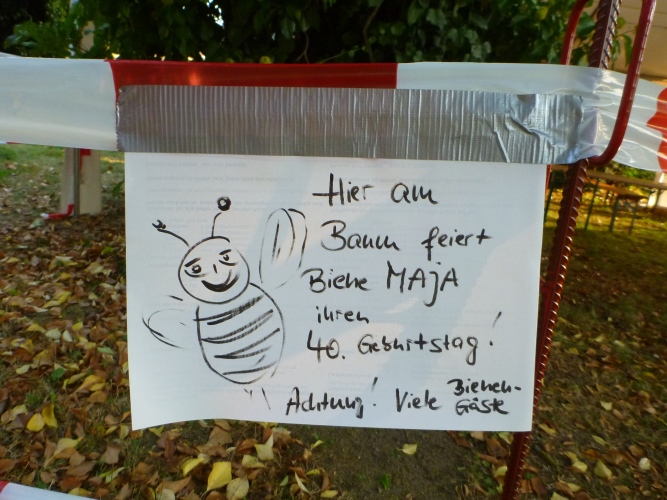 Hier am
Baum feiert
Biene MAjA
ihren
40. Geburtstag!
Achtung! Viele Bienen-
Gäste